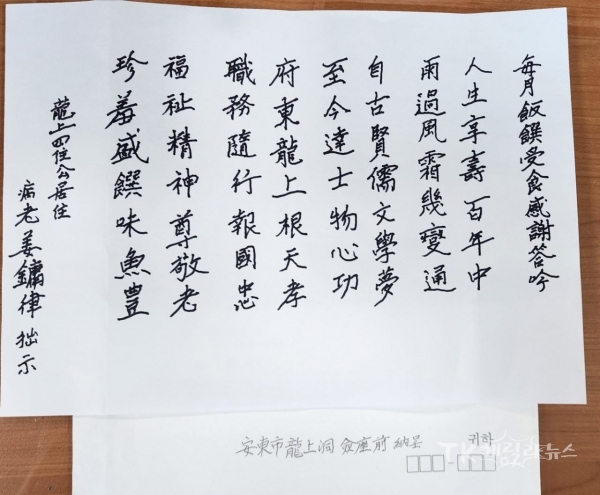 每月飯饌受食感謝答吟
人生享壽百年中
雨過風霜幾變通
自古賢儒文學夢
至今達士物心功
府東龍上根天孝
職務隨行報國忠
福祉精神尊敬老
珍羞盛饌味魚豊
龍上四住公居住
病老姜鏞律拙示
安東市龍上洞 座前 納呈
귀하
TV 뉴스